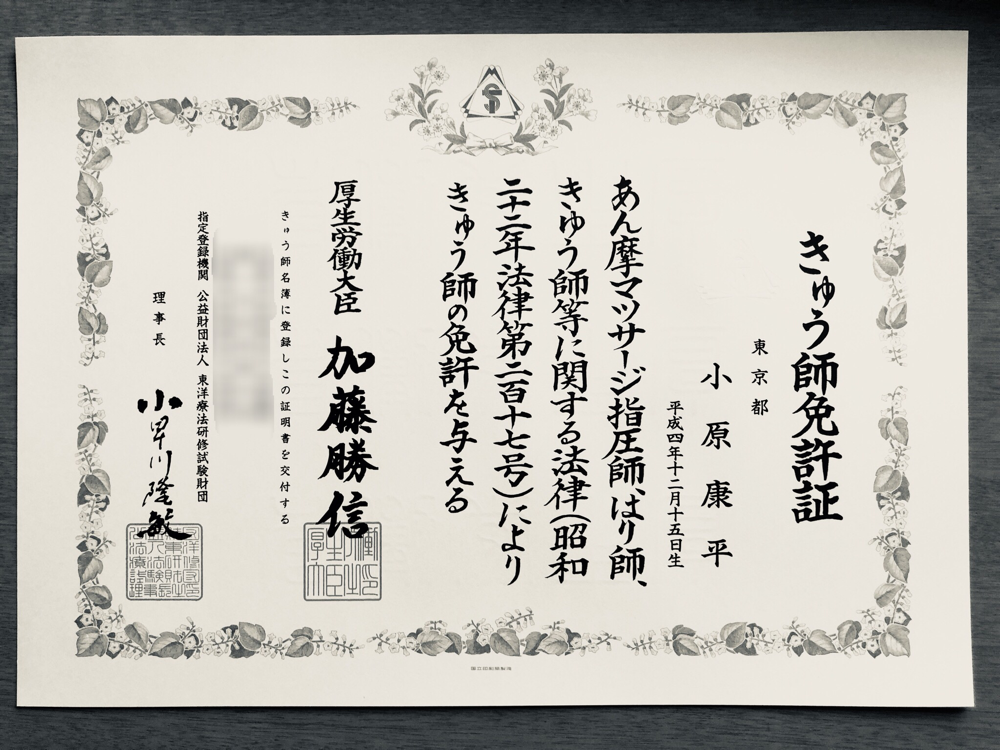 きゅう師免許証
東京都
小原康平
平成四年十二月十五日生
あん摩マツサージ指圧師、はり師、
きゅう師等に関する法律(昭和
二十二年法律第二百十七号)により
きゅう師の免許を与える
厚生労働大臣 加藤勝信
きゅう師名簿に登録しこの証明書を交付する
指定登録機関 公益財団法人 東洋療法研修試験財団
理事長 小早川隆敏